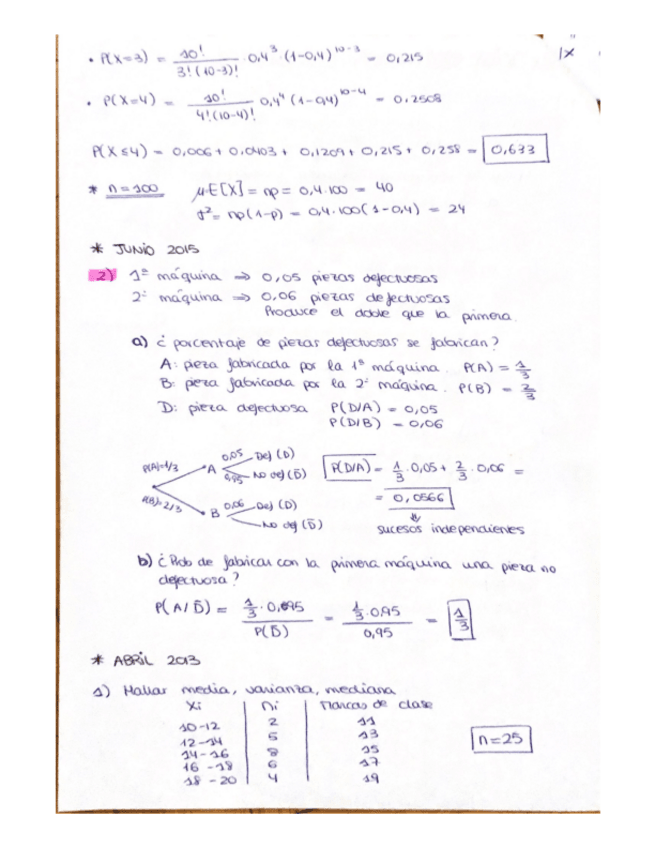 1x
• P(X=3) = 10! / 3!(10-3)! · 0,4³ · (1-0,4)¹⁰⁻³ = 0,215
• P(X=4) = 10! / 4!(10-4)! 0,4⁴ (1-0,4)¹⁰⁻⁴ = 0.2508
P(X≤4) = 0,006 + 0,0403 + 0,1209 + 0,215 + 0,258 = 0,633
* n=100 μ=E[X] = np = 0,4·100 = 40
σ² = np(1-p) = 0,4·100(1-0,4) = 24
* JUNIO 2015
2) 1ª máquina ⇒ 0,05 piezas defectuosas
2ª máquina ⇒ 0.06 piezas defectuosas
Produce el doble que la primera.
a) ¿porcentaje de piezas defectuosas se fabrican?
A: pieza fabricada por la 1ª máquina. P(A) = 1/3
B: pieza fabricada por la 2ª máquina. P(B) = 2/3
D: pieza defectuosa P(D/A) = 0,05
P(D/B) = 0,06
P(A)=1/3 A 0,05 Def (D)
0,95 No def (D̄)
P(B)=2/3 B 0,06 Def (D)
No def (D̄)
P(D/A) = 1/3 · 0,05 + 2/3 · 0,06 =
= 0,0566
⇓
sucesos independientes
b) ¿Prob de fabricar con la primera máquina una pieza no
defectuosa?
P(A/D̄) = 1/3 · 0,95 / P(D̄) = 1/3 · 0,95 / 0,95 = 1/3
* ABRIL 2013
1) Hallar media, varianza, mediana
Xi ni Marcas de clase
10-12 2 11
12-14 5 13
14-16 8 15
16-18 6 17
18-20 4 19
n=25